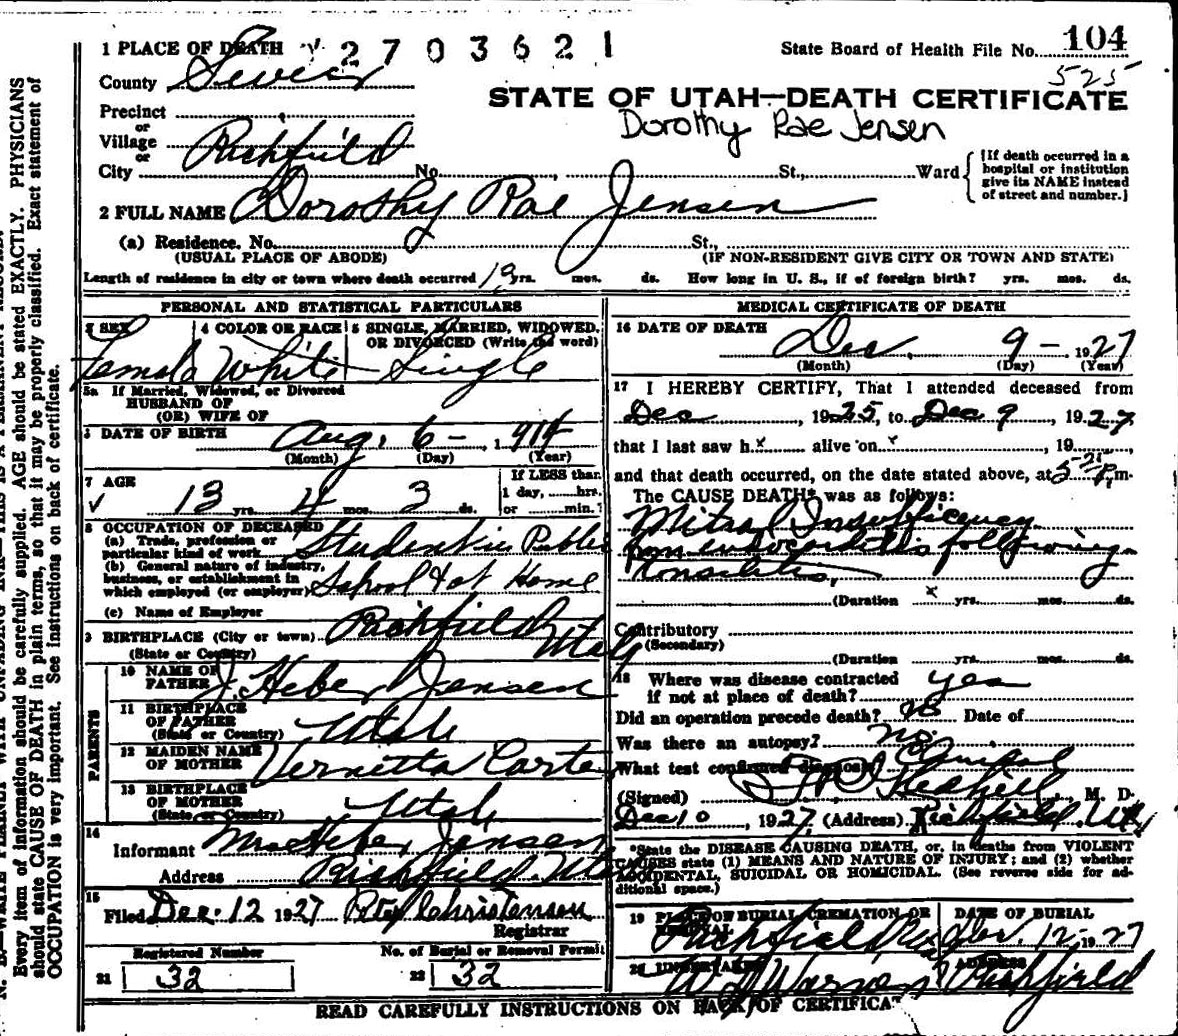 1 PLACE OF DEATH 2703621
State Board of Health File No. 104
525
County Sevier
STATE OF UTAH—DEATH CERTIFICATE
Dorothy Rae Jensen
Precinct
or
Village
or
City Richfield No. St., Ward
{If death occurred in a
hospital or institution
give its NAME instead
of street and number.}
2 FULL NAME Dorothy Rae Jensen
(a) Residence. No. St.,
(USUAL PLACE OF ABODE) (IF NON-RESIDENT GIVE CITY OR TOWN AND STATE)
Length of residence in city or town where death occurred 13 yrs. mos. ds. How long in U. S., if of foreign birth? yrs. mos. ds.
PERSONAL AND STATISTICAL PARTICULARS
3 SEX 4 COLOR OR RACE 5 SINGLE, MARRIED, WIDOWED,
OR DIVORCED (Write the word)
Female White Single
5a If Married, Widowed, or Divorced
HUSBAND OF
(OR) WIFE OF
DATE OF BIRTH Aug. 6- 1914
(Month) (Day) (Year)
7 AGE If LESS than
13 yrs. 4 mos. 3 ds. 1 day, hrs.
or min.?
8 OCCUPATION OF DECEASED
(a) Trade, profession or
particular kind of work Student in Public
(b) General nature of industry,
business, or establishment in
which employed (or employer) School & at Home
(c) Name of Employer
9 BIRTHPLACE (City or town) Richfield
(State or Country) Utah
PARENTS
10 NAME OF
FATHER J. Heber Jensen
11 BIRTHPLACE
OF FATHER
(State or Country) Utah
12 MAIDEN NAME
OF MOTHER Vernitta Carter
13 BIRTHPLACE
OF MOTHER
(State or Country) Utah
14
Informant Mrs Heber Jensen
Address Richfield, Utah
15
Filed Dec. 12 1927 Christensen
Registrar
Registered Number No. of Burial or Removal Permit
21 32 22 32
MEDICAL CERTIFICATE OF DEATH
16 DATE OF DEATH Dec. 9- 1927
(Month) (Day) (Year)
17 I HEREBY CERTIFY, That I attended deceased from
Dec 1925, to Dec 9, 1927
that I last saw h x alive on 19
and that death occurred, on the date stated above, at P. m.
The CAUSE DEATH* was as follows:
Mitral Insufficiency
from endocarditis following
tonsilitis.
(Duration x yrs. mos. ds.
Contributory
(Secondary)
(Duration yrs. mos. ds.
18 Where was disease contracted
if not at place of death? yes
Did an operation precede death? no Date of
Was there an autopsy? no
What test confirmed diagnosis
(Signed) M. D.
Dec 10, 1927, (Address) Richfield, Utah
*State the DISEASE CAUSING DEATH, or, in deaths from VIOLENT
CAUSES state (1) MEANS AND NATURE OF INJURY; and (2) whether
ACCIDENTAL, SUICIDAL OR HOMICIDAL. (See reverse side for ad-
ditional space.)
19 PLACE OF BURIAL CREMATION OR
REMOVAL DATE OF BURIAL
Richfield Dec. 12- 1927
20 UNDERTAKER ADDRESS
Warson Richfield
READ CAREFULLY INSTRUCTIONS ON BACK OF CERTIFICAT
Every item of information should be carefully supplied. AGE should be stated EXACTLY. PHYSICIANS
should state CAUSE OF DEATH in plain terms, so that it may be properly classified. Exact statement of
OCCUPATION is very important. See instructions on back of certificate.